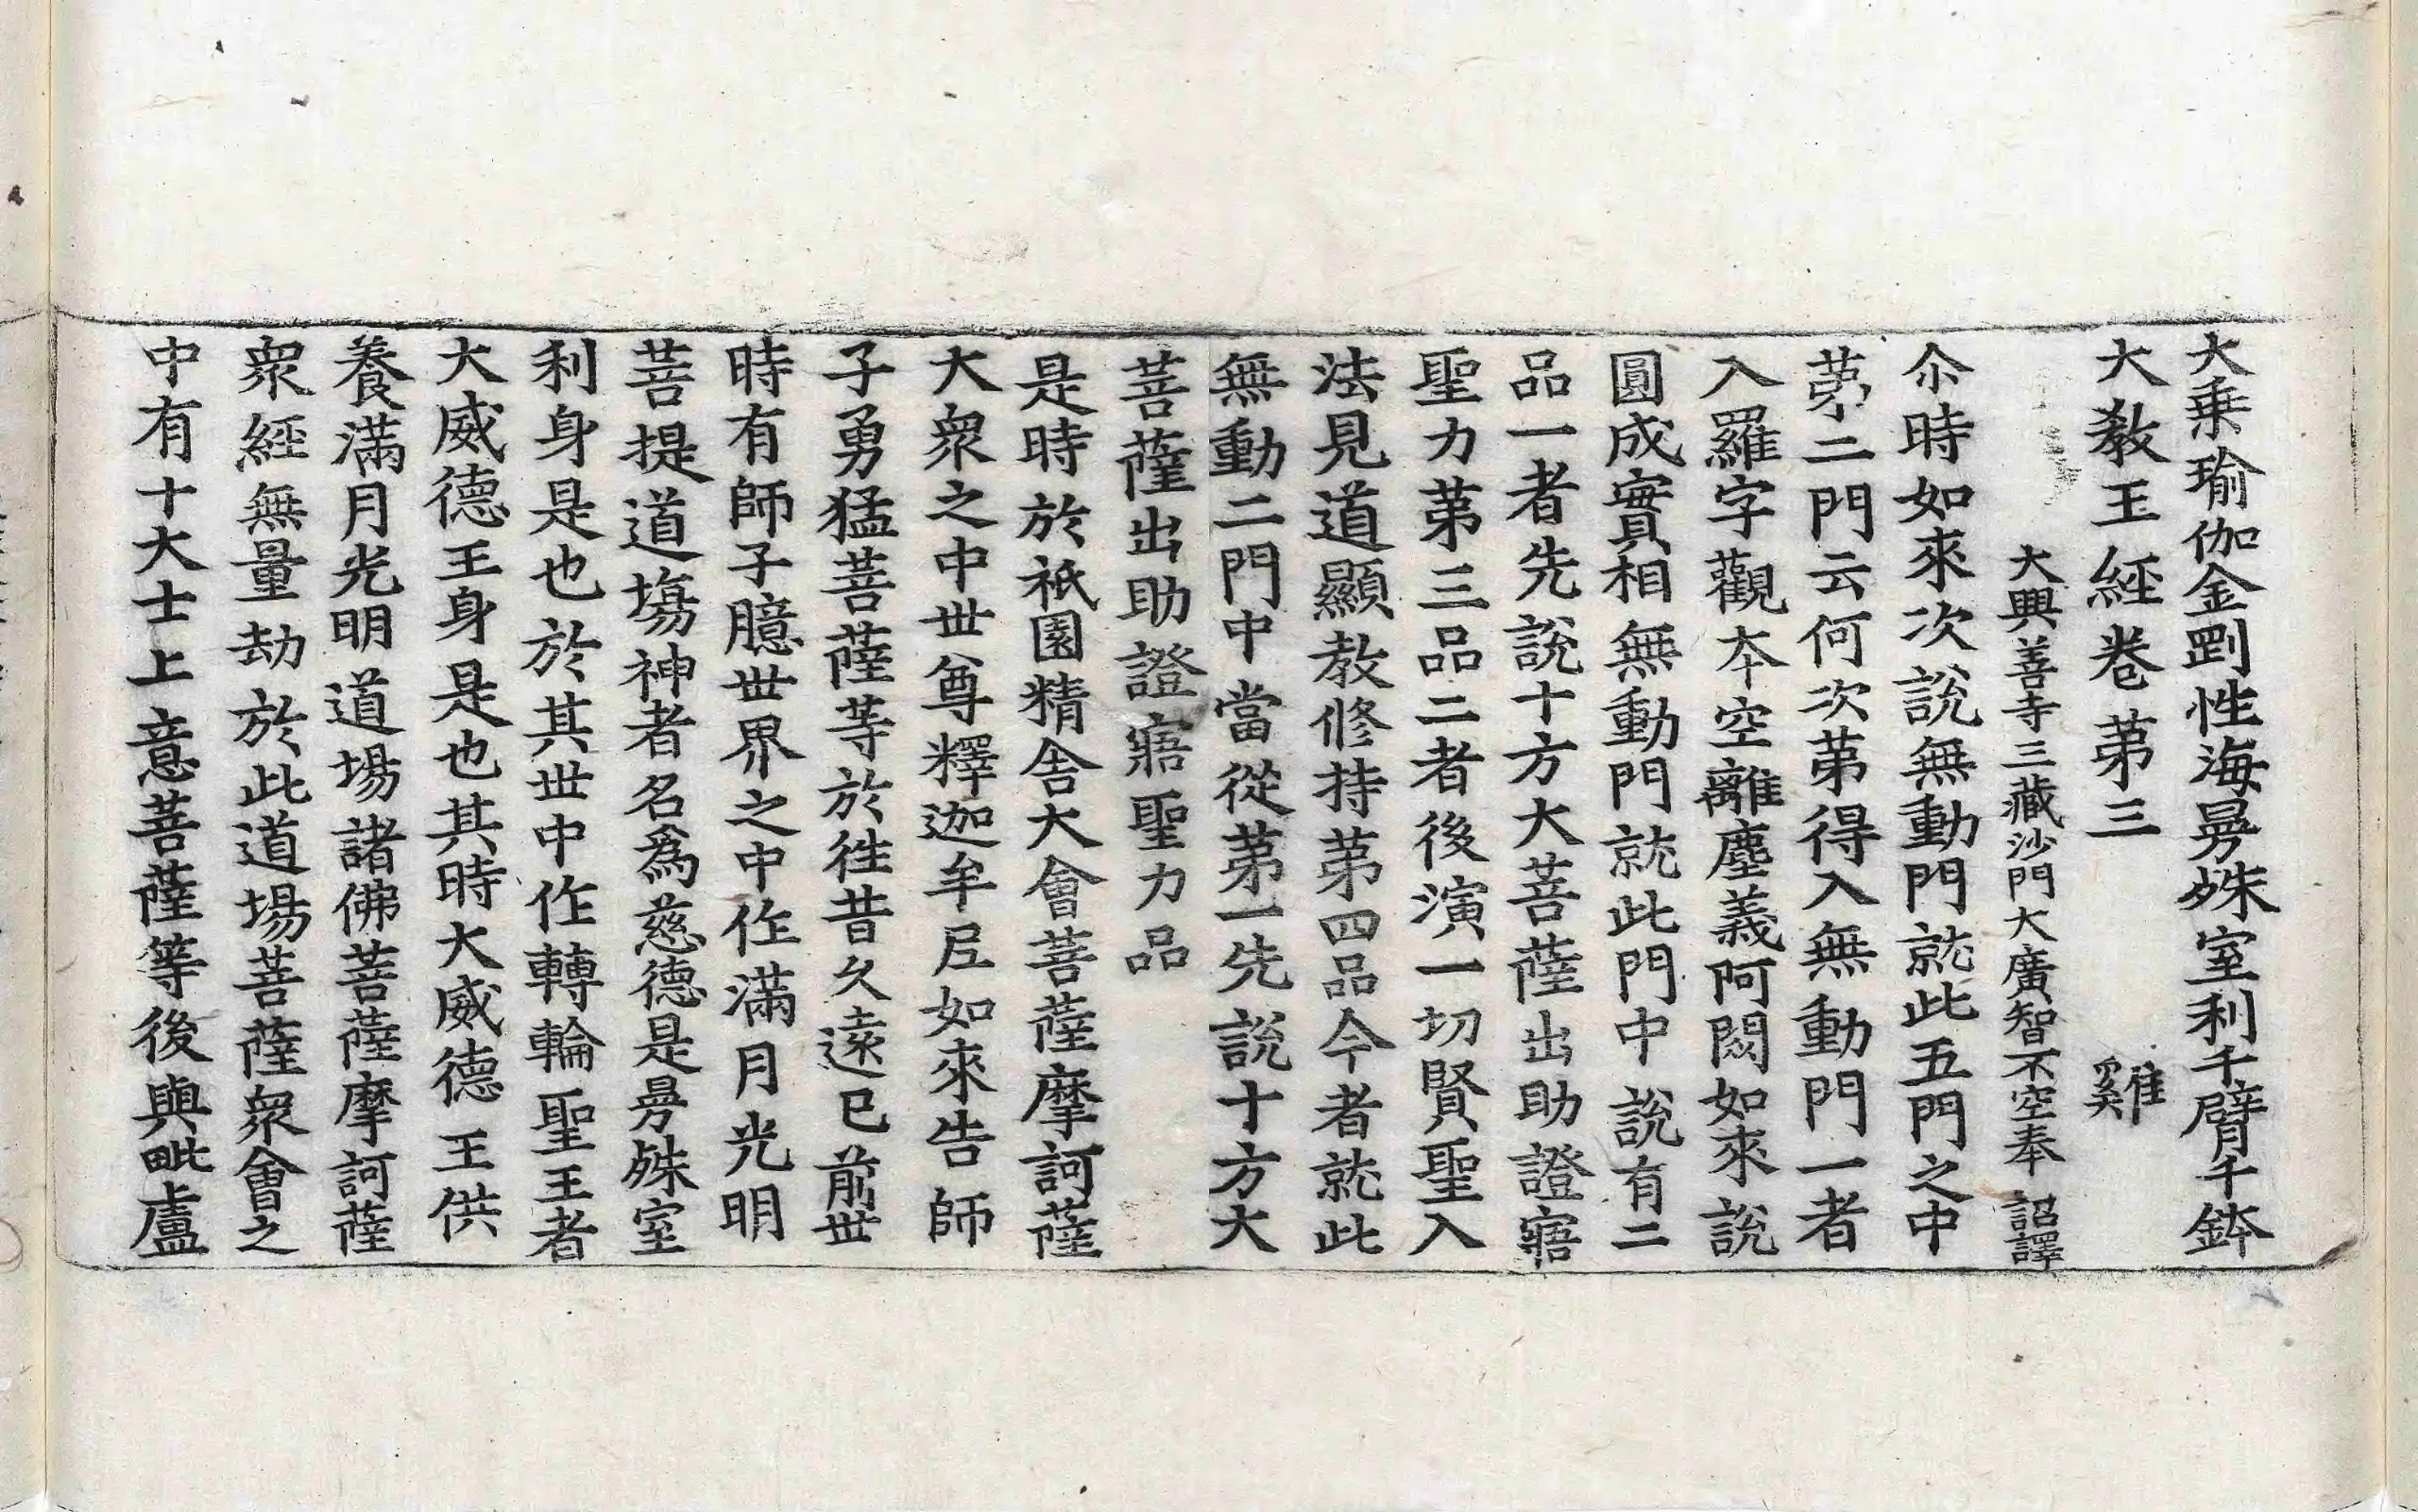 大乗瑜伽金剛性海曼殊室利千臂千鉢
大教王経卷第三 雞
大興善寺三藏沙門大廣智不空奉 詔譯
尒時如來次說無動門就此五門之中
第二門云何次第得入無動門一者
入羅字觀本空離塵義阿閦如來說
圓成實相無動門就此門中說有二
品一者先說十方大菩薩出助證寤
聖力第三品二者後演一切賢聖入
法見道顯教修持第四品今者就此
無動二門中當從第一先說十方大
菩薩出助證寤聖力品
是時於祇園精舍大會菩薩摩訶薩
大衆之中世尊釋迦牟尼如來告師
子勇猛菩薩等於徃昔久遠已前世
時有師子臆世界之中作滿月光明
菩提道場神者名爲慈德是曼殊室
利身是也於其世中作轉輪聖王者
大威德王身是也其時大威德王供
養滿月光明道場諸佛菩薩摩訶薩
衆經無量劫於此道場菩薩衆會之
中有十大士上意菩薩等後與毗盧